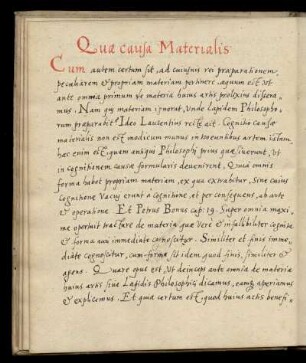 Quæ causa Materialis
Cum autem certum sit, ad cuiusuis rei præparationem
peculiarem et propriam materiam pertinere, æquum est, ut
ante omnia primum de materia huius artis prolixius dissera-
mus. Nam qui materiam ignorat, unde lapidem Philosopho-
rum præparabit? Ideo Laurentius recte ait. Cognitio causæ
materialis non est modicum munus inuenientibus artem istam
hæc enim est, quam antiqui Philosophi prius quæsiuerunt, ut
in cognitionem causæ formularis deuenirent. Quia omnis
forma habet propriam materiam, ex qua extrahitur. Sine cuius
Cognitione Vacui erunt a cognitione, et per consequens, ab arte
et operatione. Et Petrus Bonus cap: 19. Super omnia maxi-
me oportuit tractare de materia, quæ vere et infallibiliter cognita
et forma cum immediate cognoscitur. Similiter et finis imme-
diate cognoscitur, cum forma sit idem, quod finis, similiter et
agens. Quare opus est, ut deinceps ante omnia de materia
huius artis siue Lapidis Philosophici dicamus, eamque aperiamus
et explicemus. Et quia certum est, quod huius artis benefi-